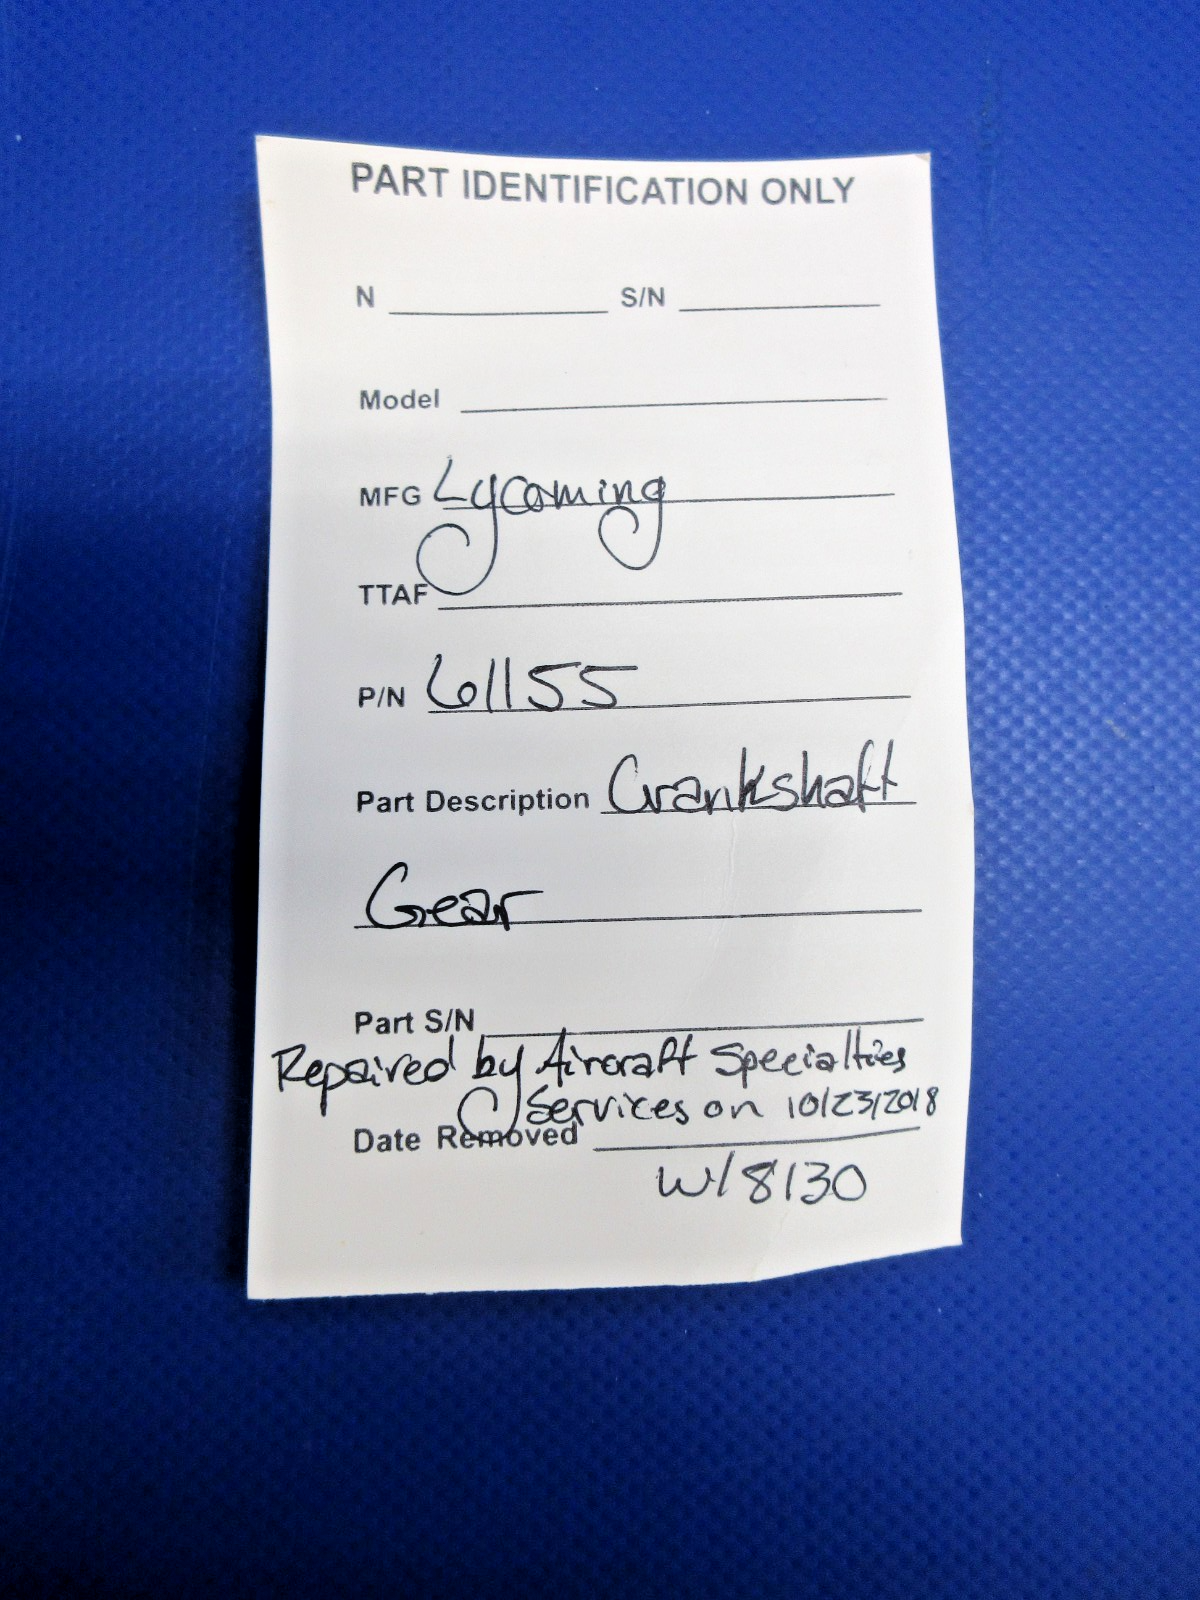 PART IDENTIFICATION ONLY
N S/N
Model
MFG Lycoming
TTAF
P/N 61155
Part Description Crankshaft
Gear
Part S/N
Repaired by Aircraft Specialties
Services on 10/23/2018
Date Removed
W/8130